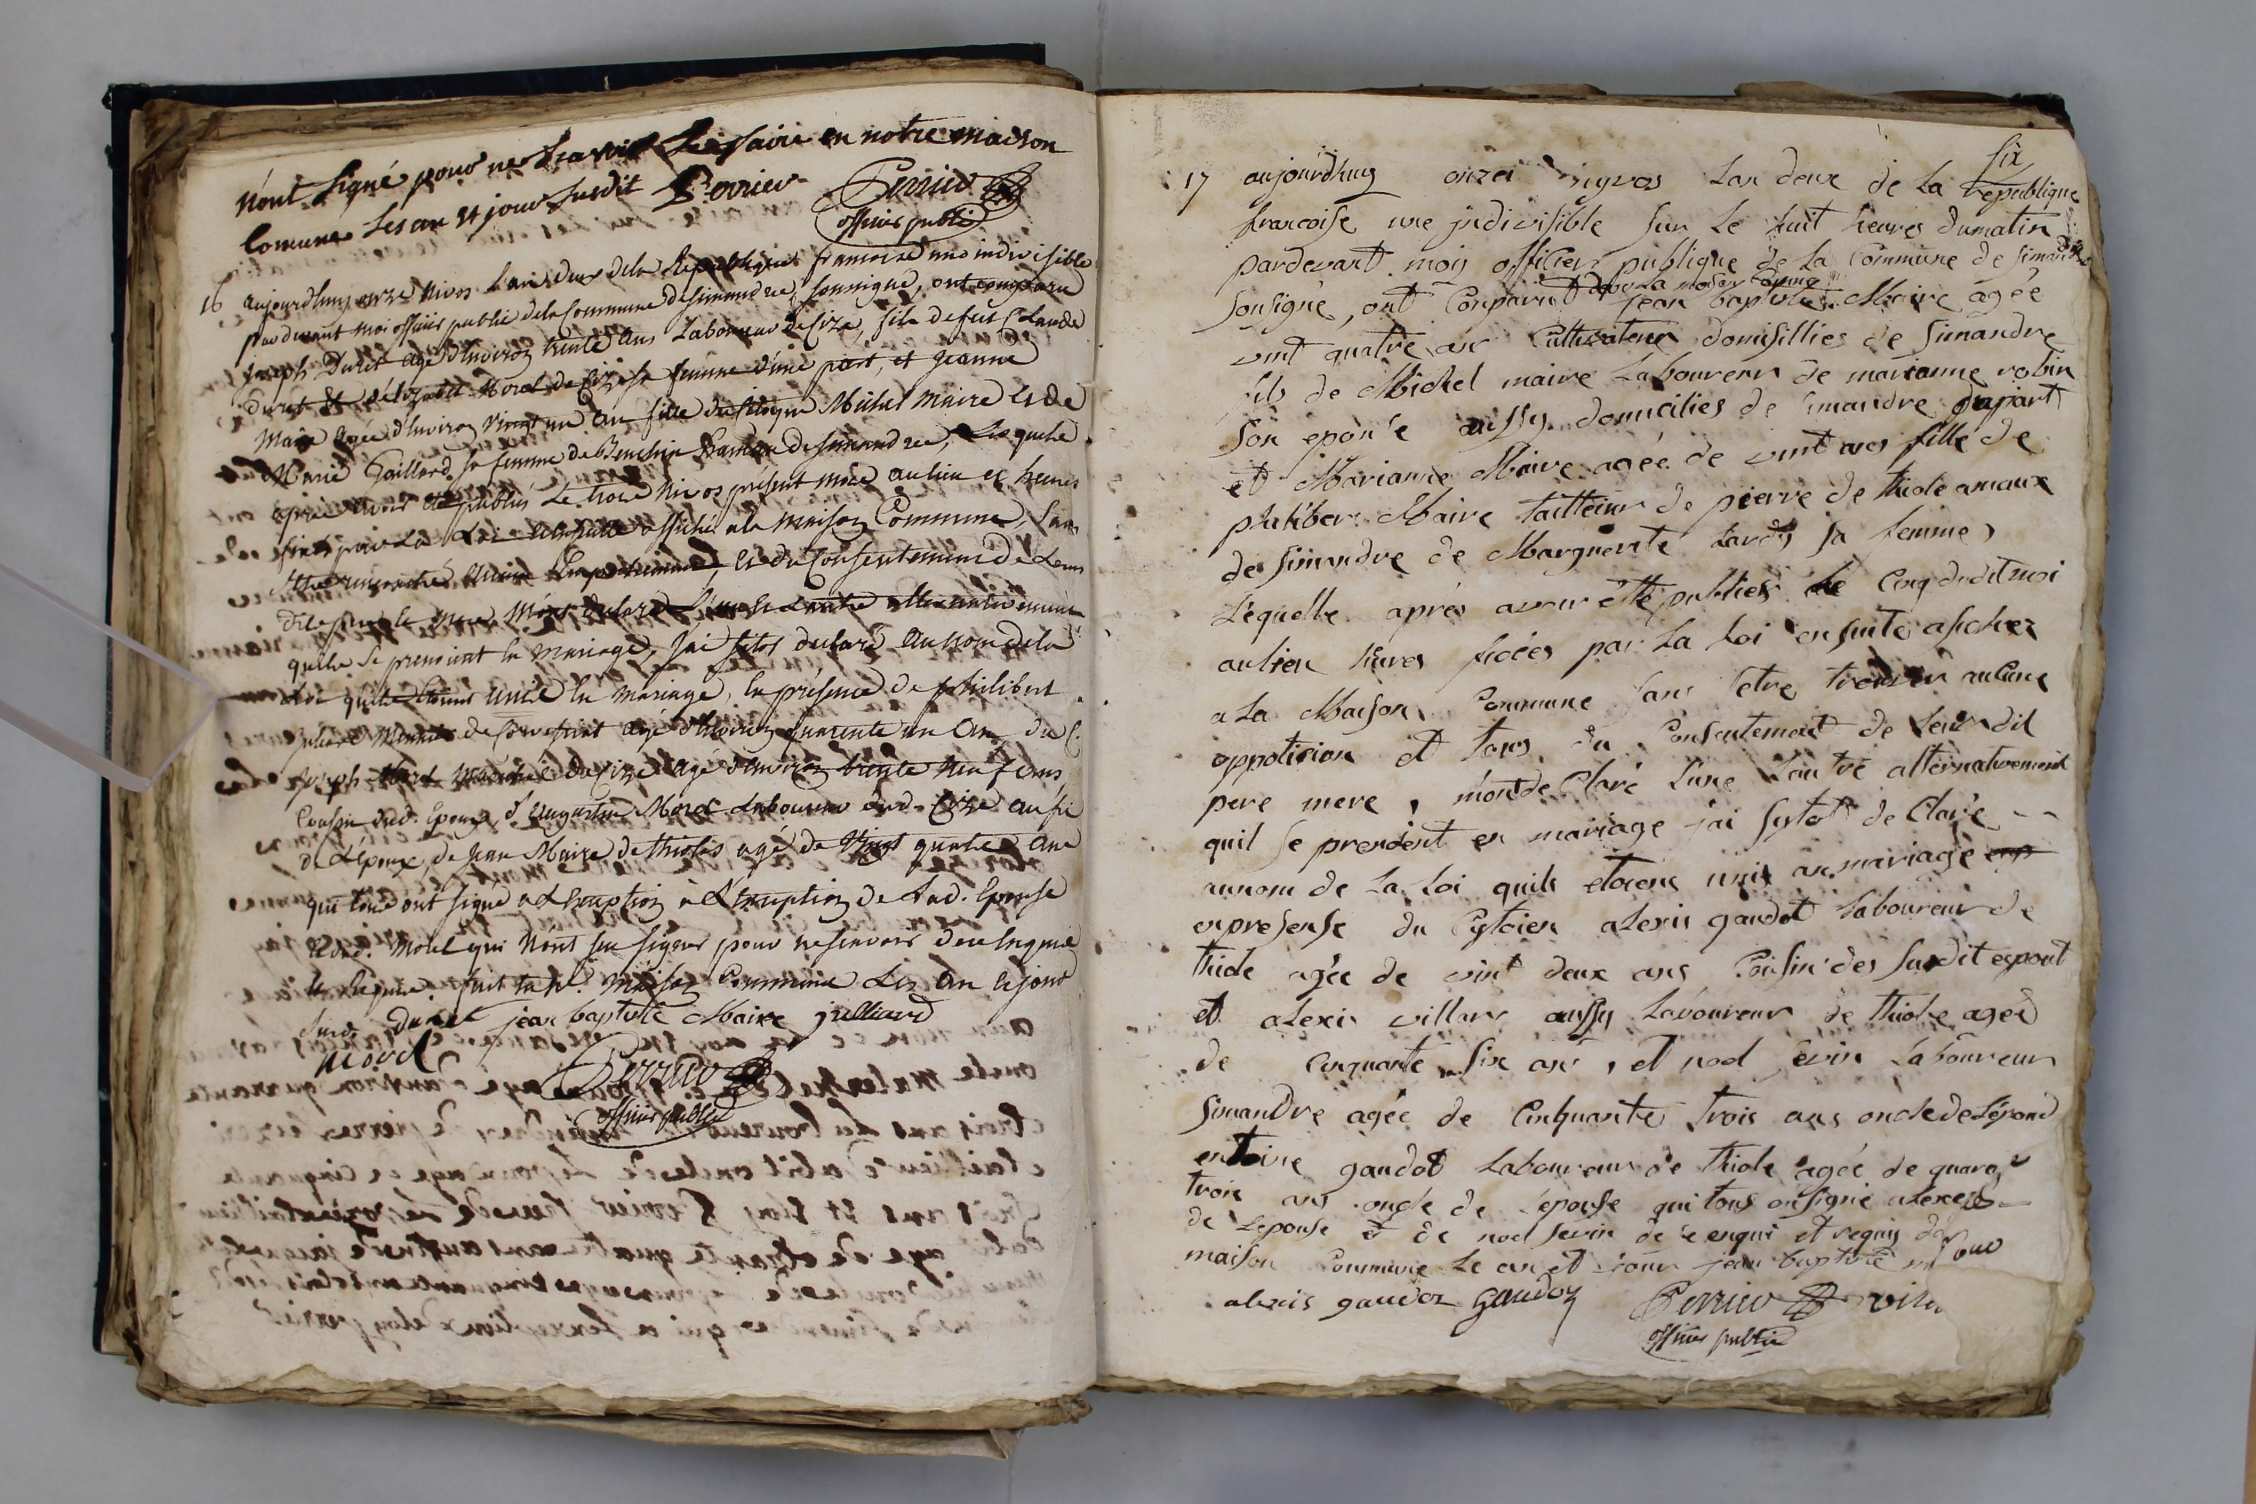 nont signé pour ne scavoir Le faire en notre maison
Comune Les an et jour susdit Perrier Perrier
officier public
16 aujourdhuy onze nivos Lan deux de la Republique francoise une indivisible
pardevant moi officier public de la Commune de simandre soussigné, ont comparu
joseph Duret agé d'environ trente ans Laboureur de Cize, fils de feu Claude
duret et d'élizabet Morel de Cize sa femme d'une part, et jeanne
Maire agée d'environ vingt un an fille du Citoyen Michel Maire et de
Marie Gaillard sa femme de hameau de simandre, Lesquels
après avoir été publiés Le trois Nivos présent mois au lieu et heures
fixés par La Loi ensuitte affiché a la Maison Commune, sans
être aucun Empechement, et du Consentement de Leurs
dits mont declaré L'un et L'autre alternativement
quils se prenoient en mariage, jai sitos declaré au nom de la
Loi quils étoient unis en mariage, en présence de philibert
juliard de agé d'environ quarente un ans du C.
joseph Morel de Cize agé d'environ trente neuf ans
Cousin dud. Epoux, d'augustin Morel Laboureur dud. Cize aussi
de L'époux, de jean Maire de thioles agé de vingt quatre ans
qui tous ont signé à L'exeption de Lad. Epouse
et dud. Morel qui n'ont su signer pour ne scavoir de ce enquis
et requis. fait en la d. Maison Commune Les an et jour
susd. duret jean baptiste Maire julliard
morel Perrier
officier public
six
17 aujourdhuy onzei nivos Lan deux de La republique
francoise une jndivisible sur Le huit heures dumatin
pardevant moy officier publique de La Commune de simandre
sousigné, ont Conparut dans La maison comune jean baptiste Maire agée
vint quatre ans Cultivateur domisilliés de Simandre
fils de Michel maire Laboureur de marianne robin
son epouse aussy domicilies de simandre dupart
et Marianne Maire agée de vint ans fille de
philiber Maire tailleur de pierre de thiole amaux
de simandre de Marguerite Lardy sa femme,
Lequelle aprés avoir étté publiés Le Cinq dudit moi
aulieu hures fixées par La Loi ensuite afichez
a La Maison Commune sans être trouver aucune
oppotision et tous du Consentement de Leur dit
pere mere, mont de Claré Lune Lautre alternativement
quil se prendent en mariage jai sytot de Claré
aunom de La Loi quils etoiens unis an mariage
enpresense du Cytoien alexis gaudot Laboureur de
thiole agée de vint deux ans Cousin des surdit espout
et alexis villars aussy Laboureur de thiole ageé
de Cinquante six ans, et noel sevin Laboureur
simandre agée de Cinquante trois ans oncle de Lépoux
entoine gaudot Laboureur de thiole agée de quarante
trois ans oncle de Lepouse qui tous onsigné
de Lepouse et de noel sevin de ce enqui et requis
maison Commune Le an et jour jean baptiste
alexis gaudoz gaudoz Perrier
officier public